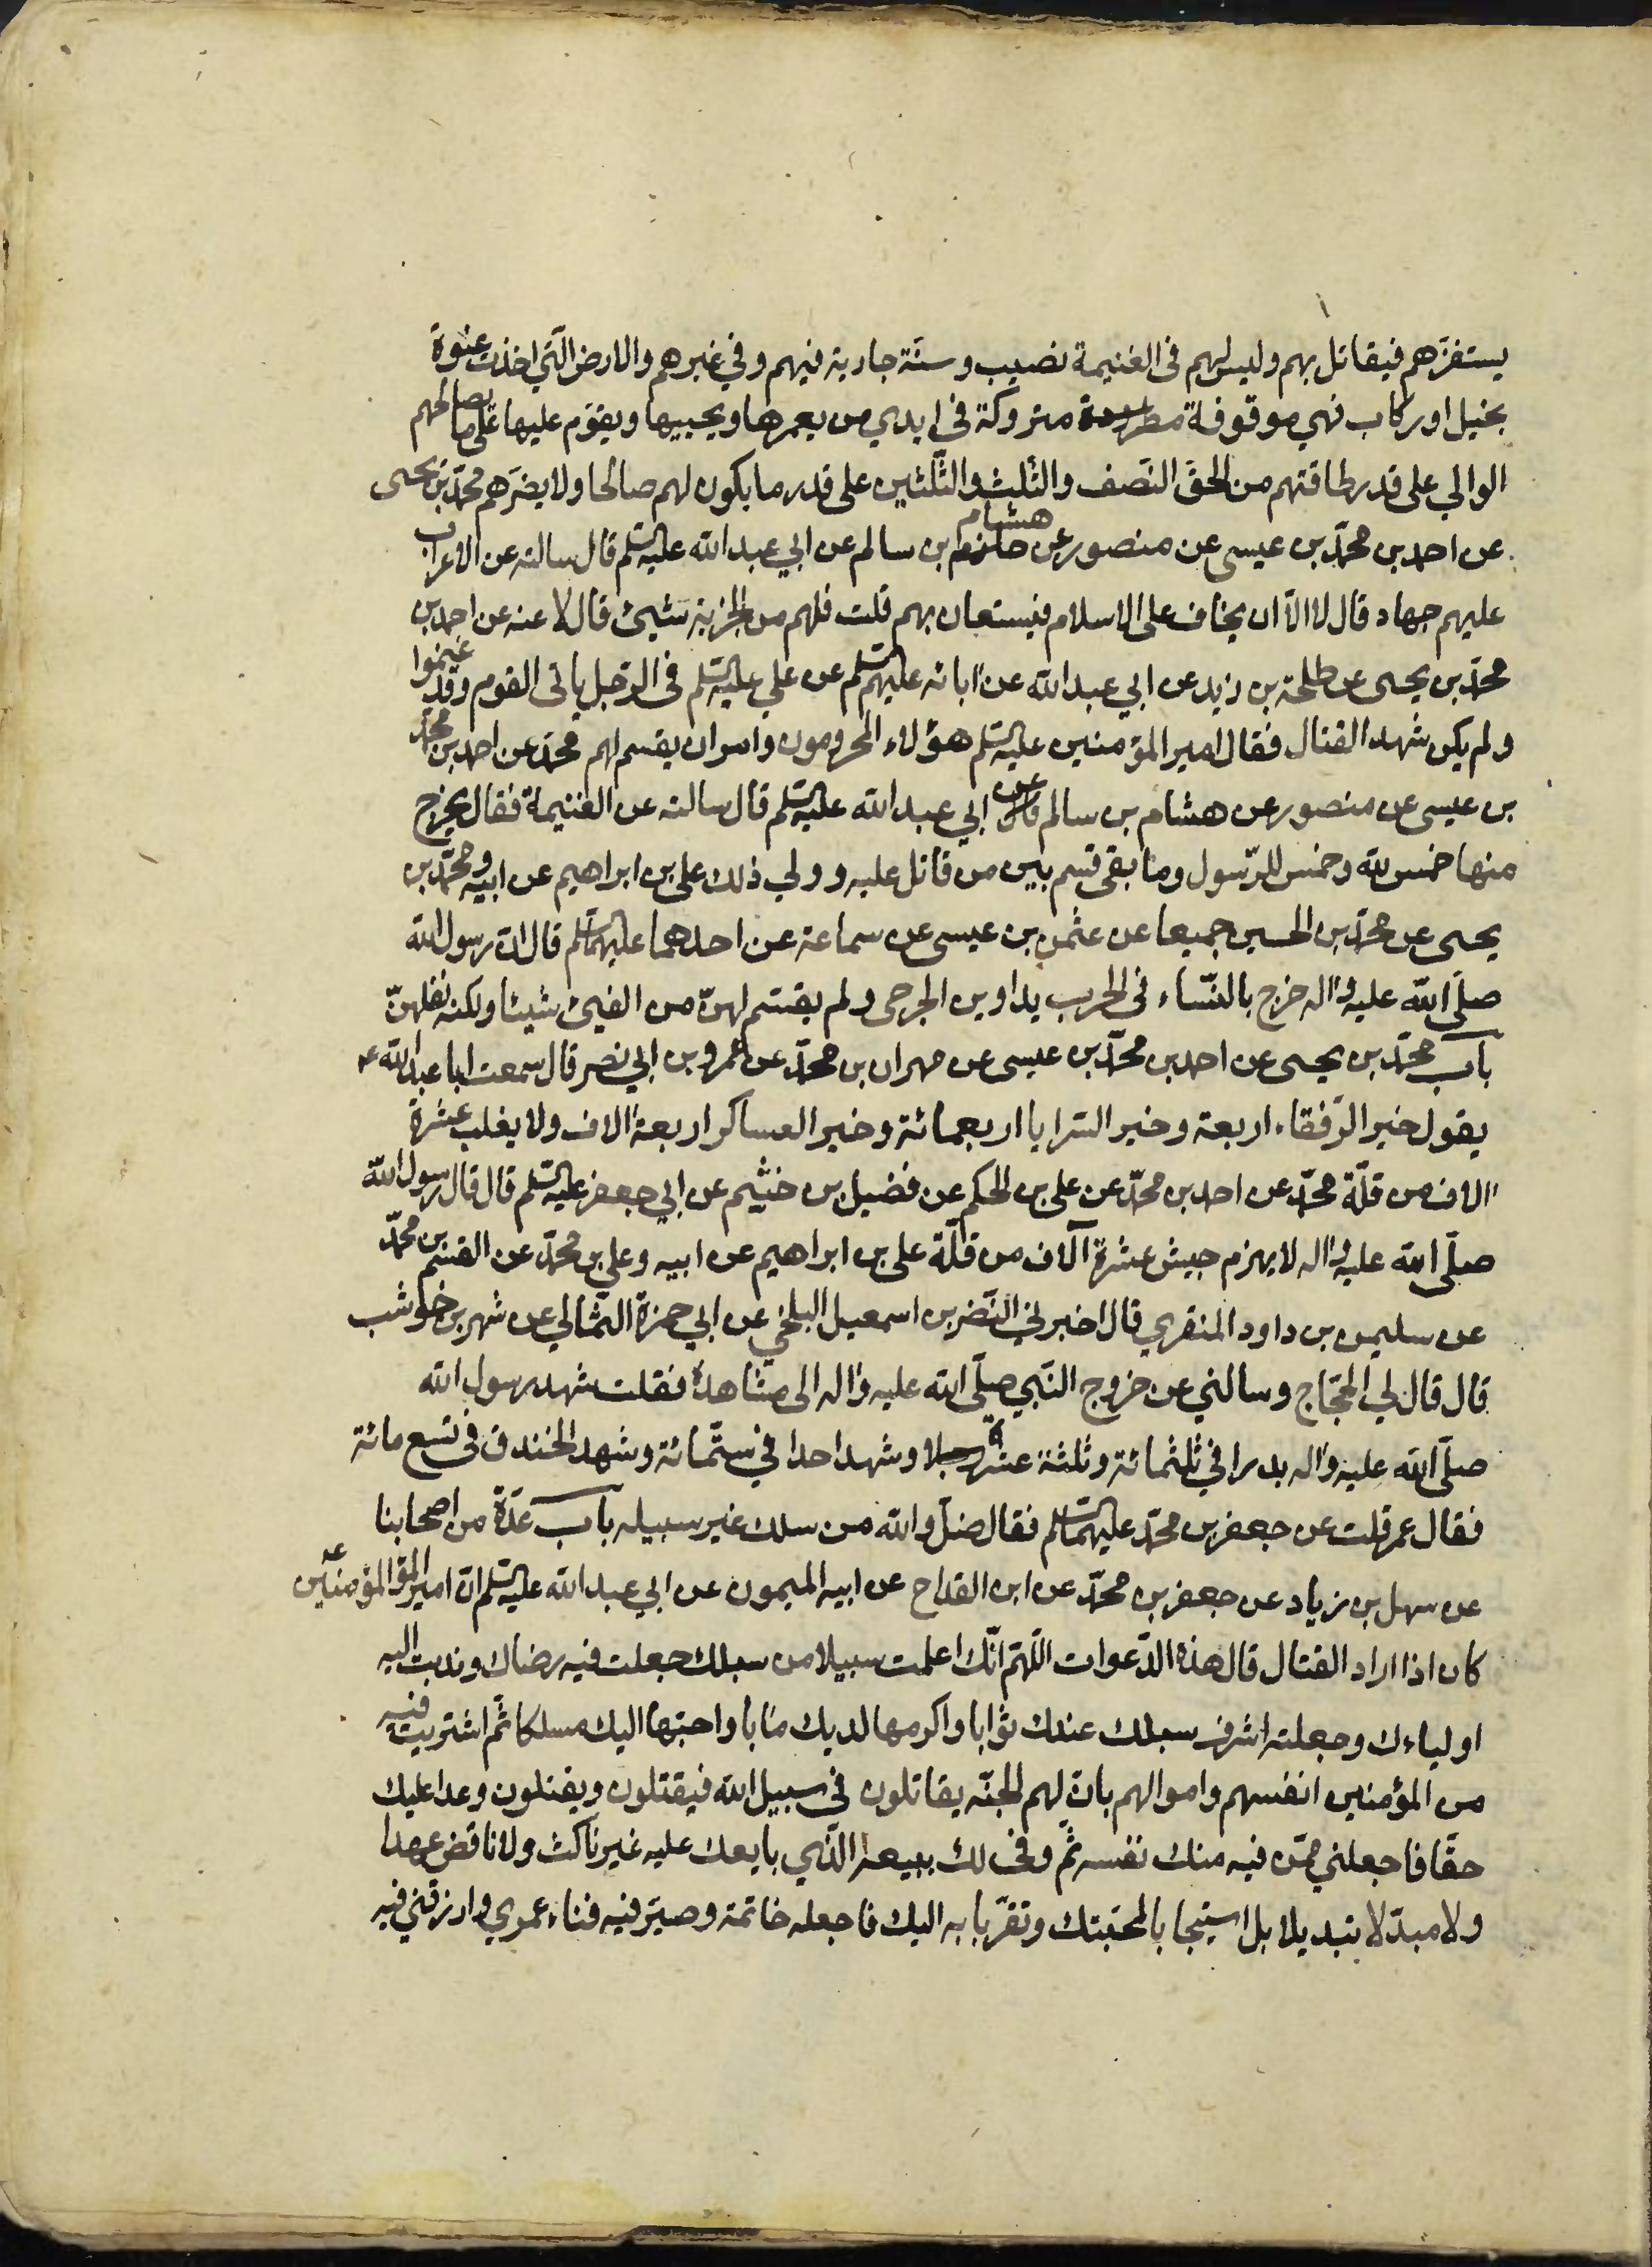 يستفزهم فيقاتل بهم وليس لهم في الغنيمة نصيب وسنّة جارية فيهم وفي غيرهم والارض الّتي اخذت عنوة
بخيل او ركاب فهي موقوفة متروكة في ايدي من يعمرها ويحييها ويقوم عليها على ما يصالحهم
الوالي على قدر طاقتهم من الحقّ النّصف والثّلث والثّلثين على قدر ما يكون لهم صالحا ولا يضرّهم محمّد بن يحيى
عن احمد بن محمّد بن عيسى عن منصور عن هشام بن سالم عن ابي عبد الله عليه السّلم قال سالته عن الاعراب
عليهم جهاد قال لا الّا ان يخاف على الاسلام فيستعان بهم قلت فلهم من الجزية شيئ قال لا عنه عن احمد بن
محمّد بن يحيى عن طلحة بن زيد عن ابي عبد الله عن ابائه عليهم السّلم عن علي عليه السّلم في الرّجل ياتى القوم وقد غنموا
ولم يكن شهد القتال فقال امير المؤمنين عليه السّلم هؤلاء المحرومون وامر ان يقسم لهم محمّد عن احمد بن محمّد
بن عيسى عن منصور عن هشام بن سالم عن ابي عبد الله عليه السّلم قال سالته عن الغنيمة فقال يخرج
منها خمس لله وخمس للرّسول وما بقي قسم بين من قاتل عليه وولي ذلك على بن ابراهيم عن ابيه ومحمّد بن
يحيى عن محمّد بن الحسين جميعا عن عثمن بن عيسى عن سماعة عن احدهما عليهما السّلم قال انّ رسول الله
صلّى الله عليه واله خرج بالنّساء في الحرب يداوين الجرحى ولم يقسم لهنّ من الفيئ شيئا ولكنه نفلهنّ
باب محمّد بن يحيى عن احمد بن محمّد بن عيسى عن مهران بن محمّد عن عمرو بن ابي نصر قال سمعت ابا عبد الله عه
يقول خير الرّفقاء اربعة وخير السّرايا اربعمائة وخير العساكر اربعة الاف ولا يغلب عشرة
الاف من قلّة محمّد عن احمد بن محمّد عن على بن الحكم عن فضيل بن خثيم عن ابي جعفر عليه السّلم قال قال رسول الله
صلّى الله عليه واله لا يهزم جيش عشرة آلاف من قلّة على بن ابراهيم عن ابيه وعلي بن محمّد عن القسم بن محمّد
عن سليمن بن داود المنقري قال اخبرني النّضر بن اسمعيل البلخي عن ابي حمزة الثّمالي عن شهر بن حوشب
قال قال لي الحجّاج وسالني عن خروج النّبي صلّى الله عليه واله الى مشاهدة فقلت شهد رسول الله
صلّى الله عليه واله بدرا في ثلثمائة وثلثة عشر رجلا وشهد احدا في ستّمائة وشهد الخندق في تسع مائة
فقال عمر قلت عن جعفر بن محمّد عليهما السّلم فقال ضلّ والله من سلك غير سبيله باب عدّة من اصحابنا
عن سهل بن زياد عن جعفر بن محمّد عن ابن القداح عن ابيه الميمون عن ابي عبد الله عليه السّلم انّ امير المؤمنين عه
كان اذا اراد القتال قال هذه الدّعوات اللّهمّ انّك اعلمت سبيلا من سبلك جعلت فيه رضاك وندبت اليه
اولياءك وجعلته اشرف سبلك عندك ثوابا واكرمها لديك مابا واحبّها اليك مسلكا ثمّ اشتريت فيه
من المؤمنين انفسهم واموالهم بانّ لهم الجنّة يقاتلون في سبيل الله فيقتلون ويقتلون وعدا عليك
حقّا فاجعلني ممّن فيه منك نفسه ثمّ وفى لك ببيعه الّذي بايعك عليه غير ناكث ولا ناقض عهدا
ولا مبدّلا تبديلا بل استيجابا لمحبّتك وتقرّبا به اليك فاجعله خاتمة وصيّر فيه فناء عمري وارزقني فيه